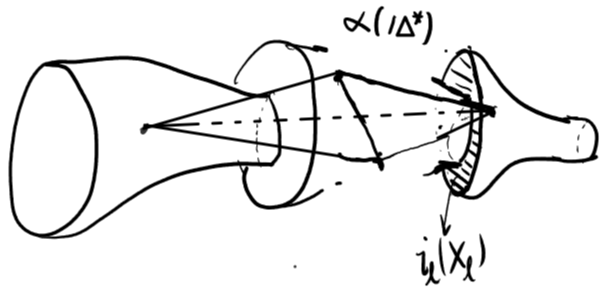 α(|Δ*)
i_ℓ(X_ℓ)